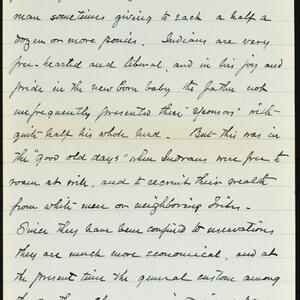 man sometimes giving to each a half a
dozen or more ponies. Indians are very
free-hearted and liberal, and in his joy and
pride in the new born baby the father not
unfrequently presented these "sponsors" with
quite half his whole herd. But this was in
the "good old days" when Indians were free to
roam at will, and to recruit their wealth
from white men or neighboring tribes.
Since they have been confined to reservations
they are much more economical, and at
the present time the general custom among